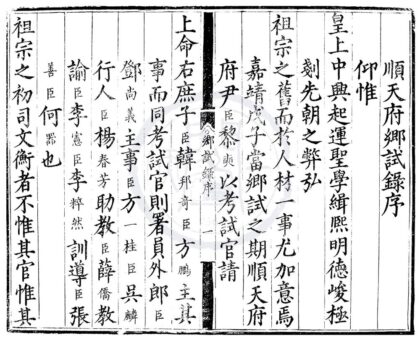 順天府鄉試錄序
仰惟
皇上中興起運聖學緝熙明德峻極
剗先朝之弊弘
祖宗之舊而於人材一事尤加意焉
嘉靖戊子當鄉試之期順天府
府尹臣黎奭以考試官請
鄉試錄序 一
上命右庶子臣韓邦奇臣方鵬主其
事而同考試官則署員外郎臣
鄧尚義主事臣方一桂臣吳麟
行人臣楊春芳助教臣薛僑教
諭臣李憲臣李粹然訓導臣張
善臣何器也
祖宗之初司文衡者不惟其官惟其